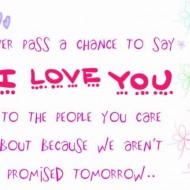 VER PASS A CHANCE TO SAY
I LOVE YOU
TO THE PEOPLE YOU CARE
BOUT BECAUSE WE AREN'T
PROMISED TOMORROW..